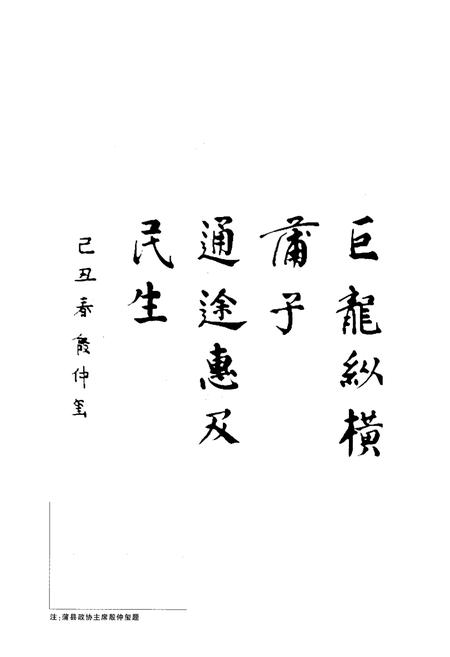 巨龍纵橫
蒲子
通途惠及
民生
己丑春殷仲玺
注：蒲县政协主席殷仲玺题